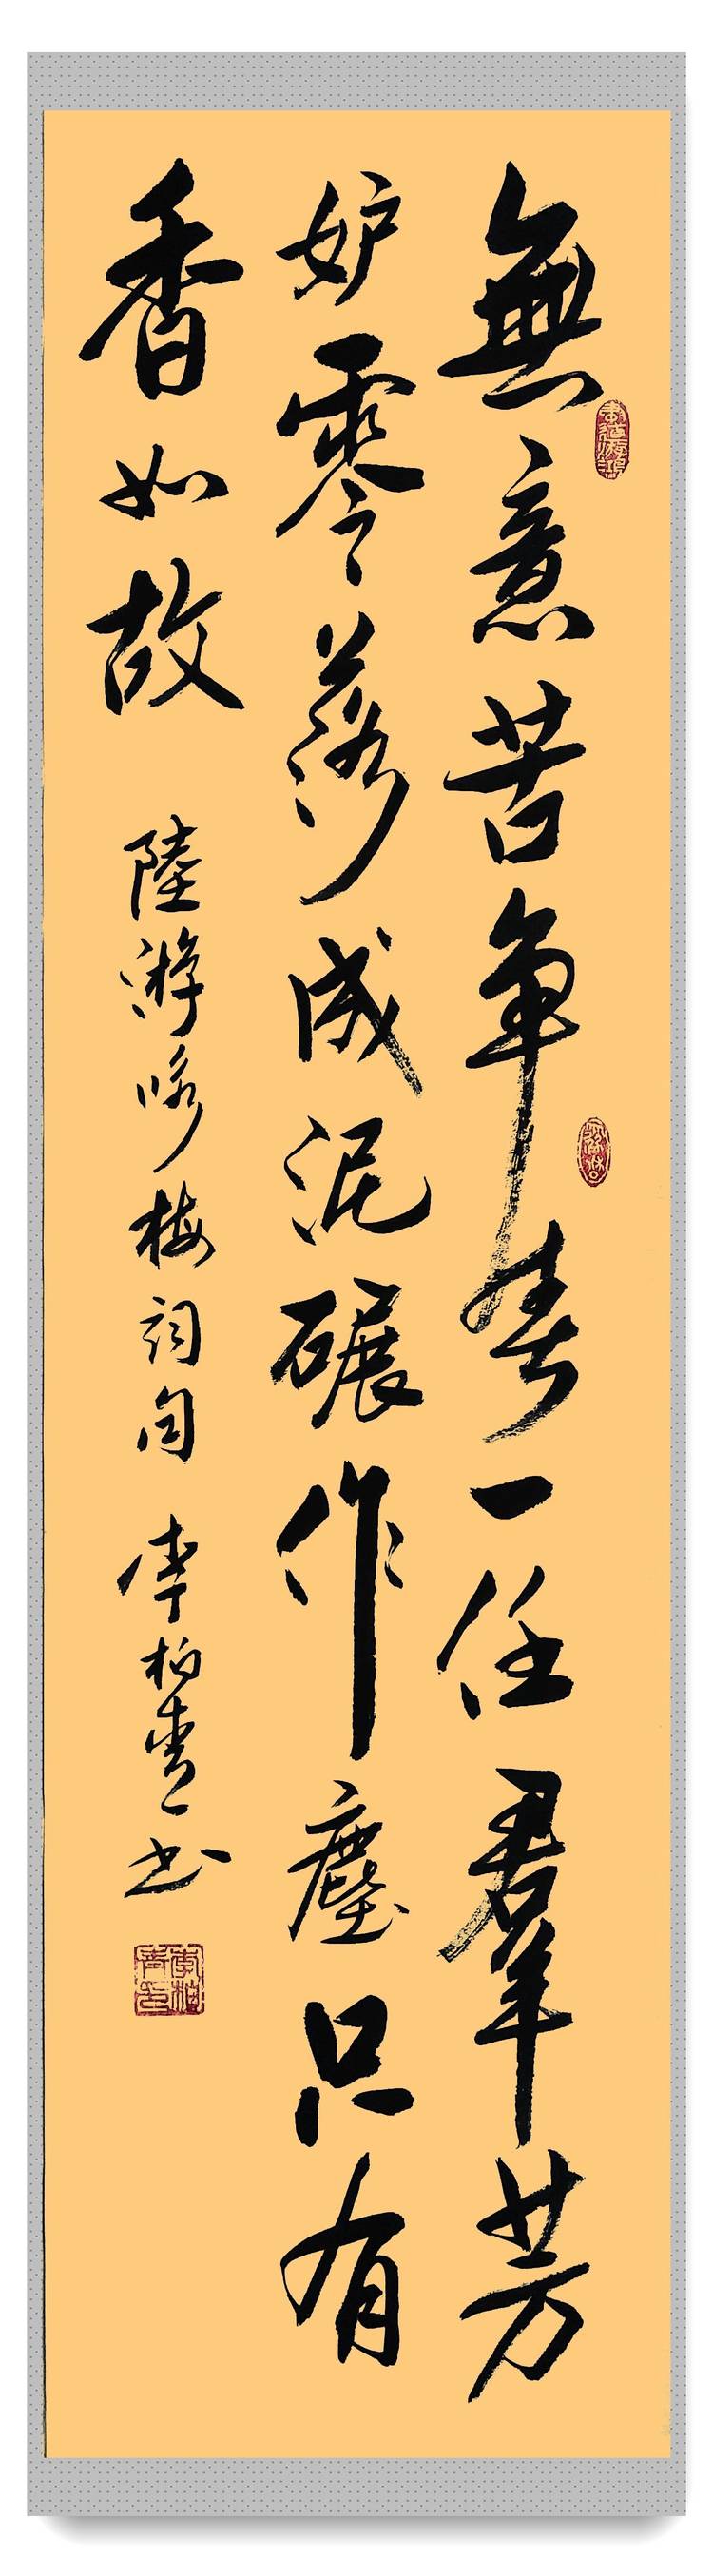 無意苦争春一任羣芳
妒零落成泥碾作塵只有
香如故
陸游咏梅詞句
李柏青书
李柏青印